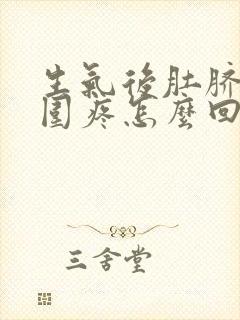 生氣後肚脐
圍疼怎麼回
三舍堂